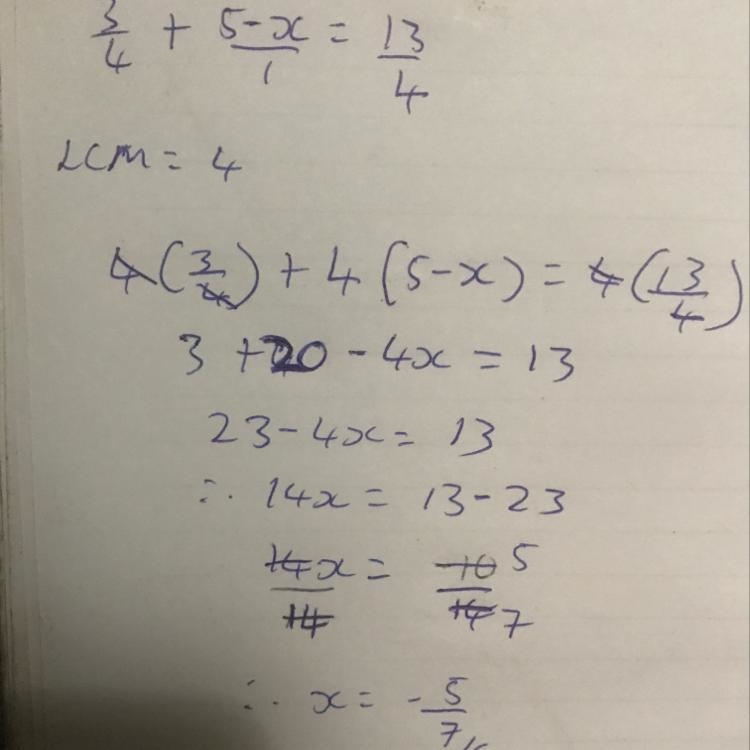 3/4 + 5-x/1 = 13/4
LCM = 4
4(3/4) + 4(5-x) = 4(13/4)
3 + 20 - 4x = 13
23 - 4x = 13
∴ 14x = 13 - 23
14x/14 = -10/14 5/7
∴ x = -5/7